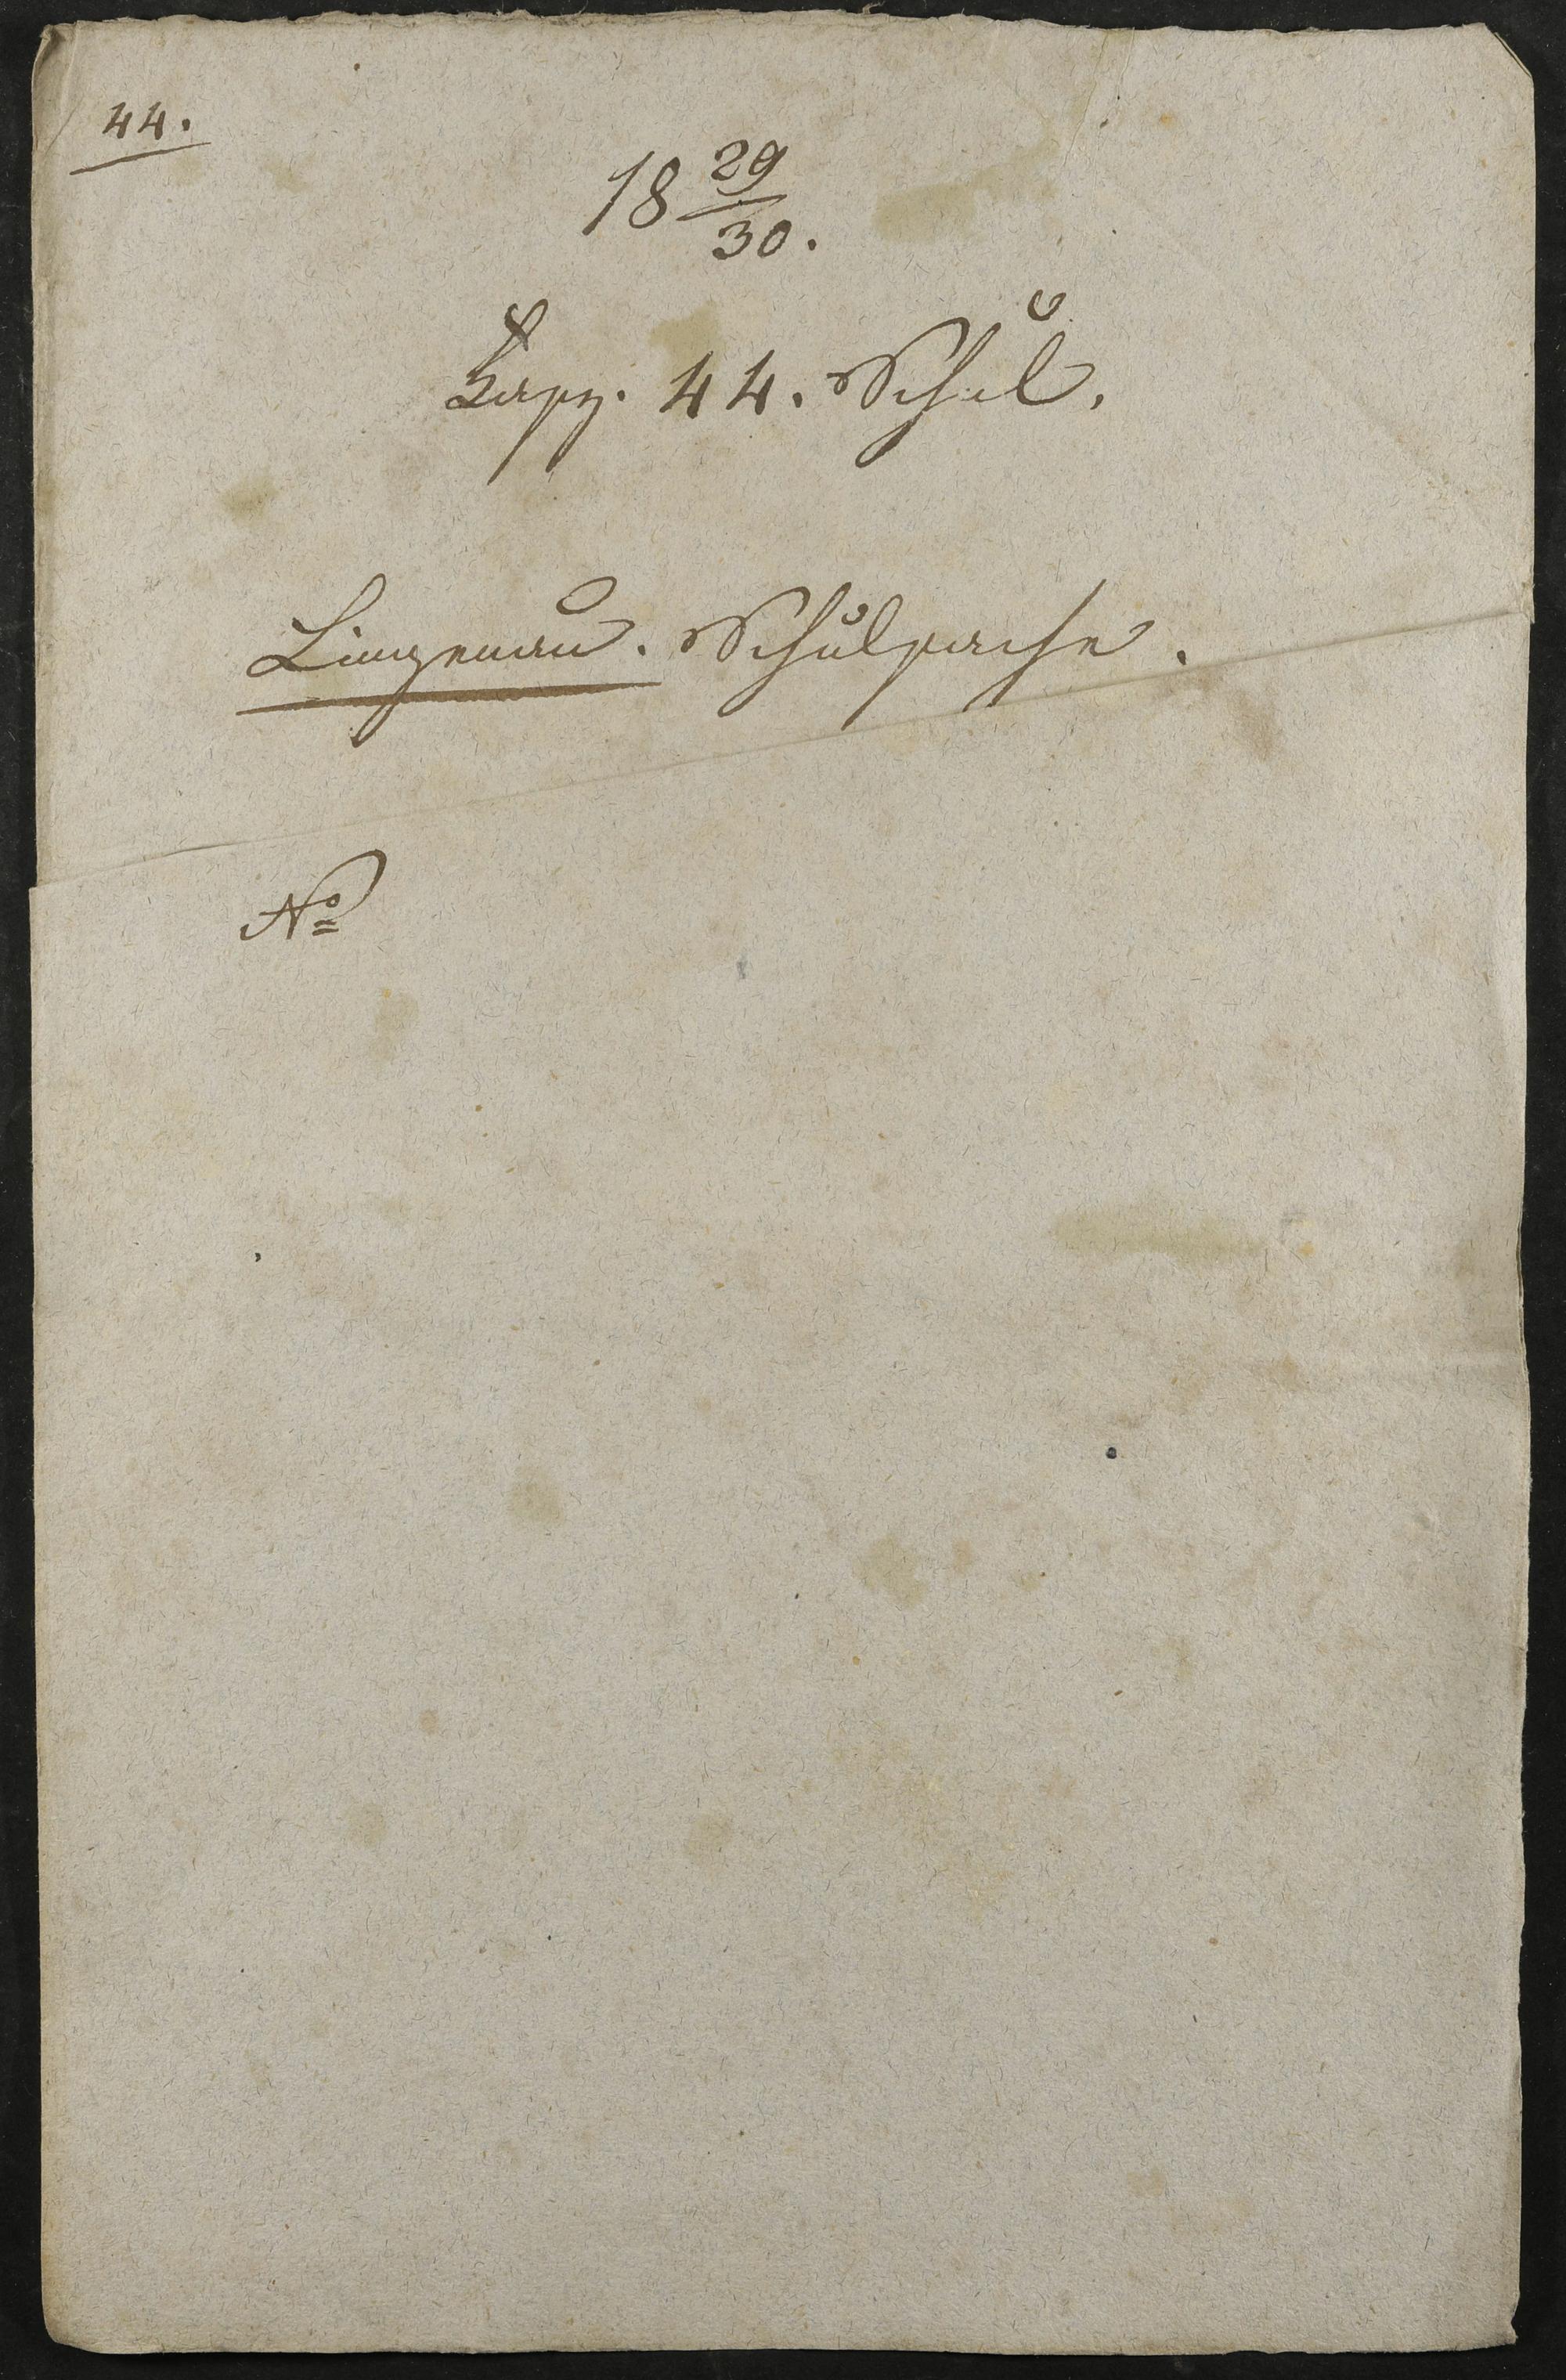 44.
18 29/30.
Fasz. 44. Schul.
Lingenau. Schulsache.
No